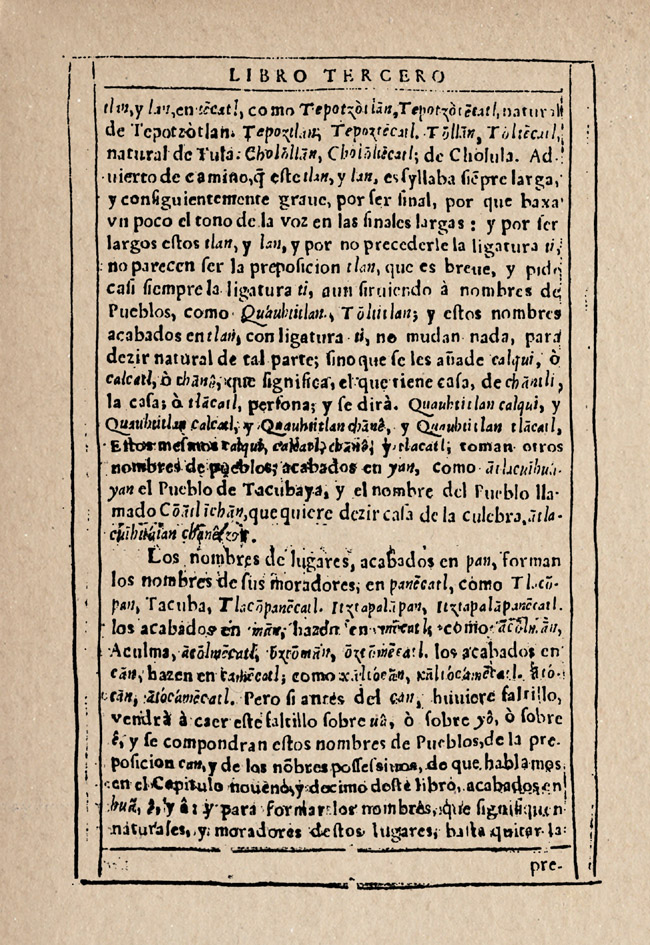 LIBRO TERCERO
tlan, y lan, en tēcatl, como Tepotzòtlān, Tepotzòtēcatl, natural
de Tepotzòtlan. Tepoztlan, Tepoztēcatl. Tōllān, Tōltēcatl,
natural de Tula. Cholōllān, Cholōltēcatl; de Cholula. Ad-
uierto de camino, q̄ este tlan, y lan, es syllaba siēpre larga,
y consiguientemente graue, por ser final, por que baxa
vn poco el tono de la voz en las finales largas: y por ser
largos estos tlan, y lan, y por no precederle la ligatura ti,
no parecen ser la preposicion tlan, que es breue, y pide
casi siempre la ligatura ti, aun siruiendo à nombres de
Pueblos, como Quauhtitlan., Tōltitlan; y estos nombres
acabados en tlan, con ligatura ti, no mudan nada, para
dezir natural de tal parte; sino que se les añade calqui, ò
calcatl, ò chānê, que significa, el que tiene casa, de chāntli,
la casa; ò tlācatl, persona; y se dirà. Quauhtitlan calqui, y
Quauhtitlan calcatl, y Quauhtitlan chānê, y Quauhtitlan tlācatl,
Estos mesmos calqui, calcatl, chānê; y tlacatl; toman otros
nombres de pueblos; acabados en yan, como ātlacuihua-
yan el Pueblo de Tacubaya, y el nombre del Pueblo lla-
mado Cōātl īchān, que quiere dezir casa de la culebra, ātla-
cuihuaian
Los nombres de lugares, acabados en pan, forman
los nombres de sus moradores, en panēcatl, como Tlacō-
pan, Tacuba, Tlacōpanēcatl. Itztapalāpan, Itztapalāpanēcatl.
los acabados en mān, hazen en mēcatl, como ācōlmān,
Aculma, ācōlmēcatl, òztōmān, òztōmēcatl. los acabados en
cān, hazen en camēcatl; como xāltocān, xāltocāmēcatl. āto-
cān, ātocamēcatl. Pero si antes del can, huuiere saltillo,
vendrà à caer este saltillo sobre uâ, ò sobre yô, ò sobre
ê, y se compondran estos nombres de Pueblos, de la pre-
posicion can, y de los nōbres possessiuos, de que hablamos
en el Capitulo noueno, y decimo deste libro, acabados en
huâ, ê, y ô: y para formar los nombres, que significan
naturales, y moradores destos lugares, basta quitar la
pre-